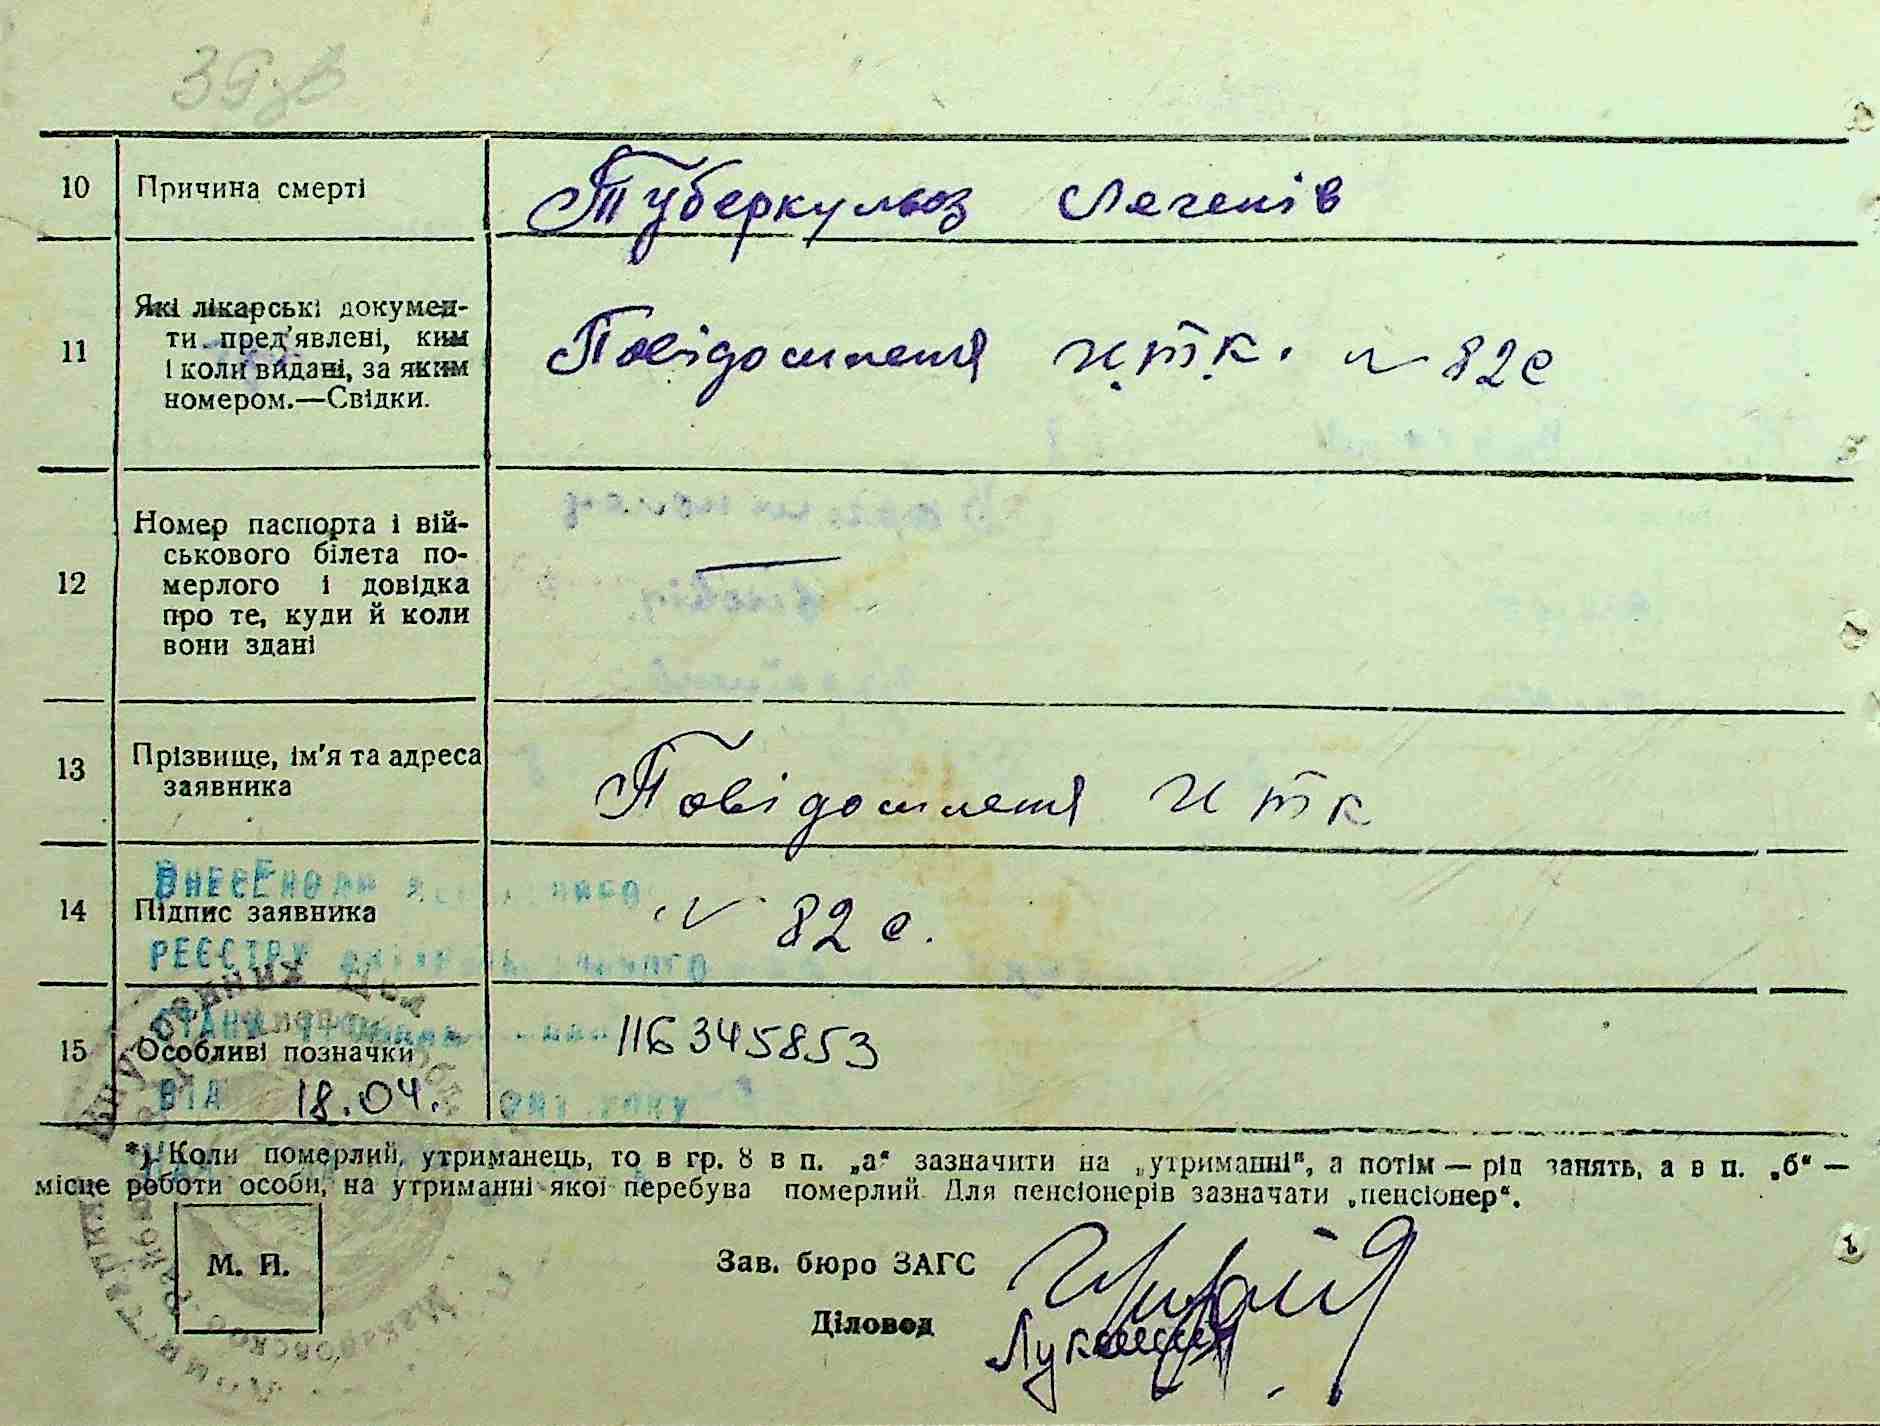 10 Причина смерті Туберкульоз Лягенів
11 Які лікарські докумен-
ти пред'явлені, ким
і коли видані, за яким
номером.—Свідки.
Повідомлення И.Т.К. № 82с
12 Номер паспорта і вій-
ськового білета по-
мерлого і довідка
про те, куди й коли
вони здані
—
13 Прізвище, ім'я та адреса
заявника
Повідомлення И Т К
ВНЕСЕНО ДО
14 Підпис заявника № 82 с.
РЕЄСТРУ
15 Особливі позначки 116345853
ВІД 18.04. року
*) Коли померлий, утриманець, то в гр. 8 в п. „а“ зазначити на „утриманні“, а потім — рід занять, а в п. „б“ —
місце роботи особи, на утриманні якої перебува померлий. Для пенсіонерів зазначати „пенсіонер“.
М. П.
Зав. бюро ЗАГС
Діловод